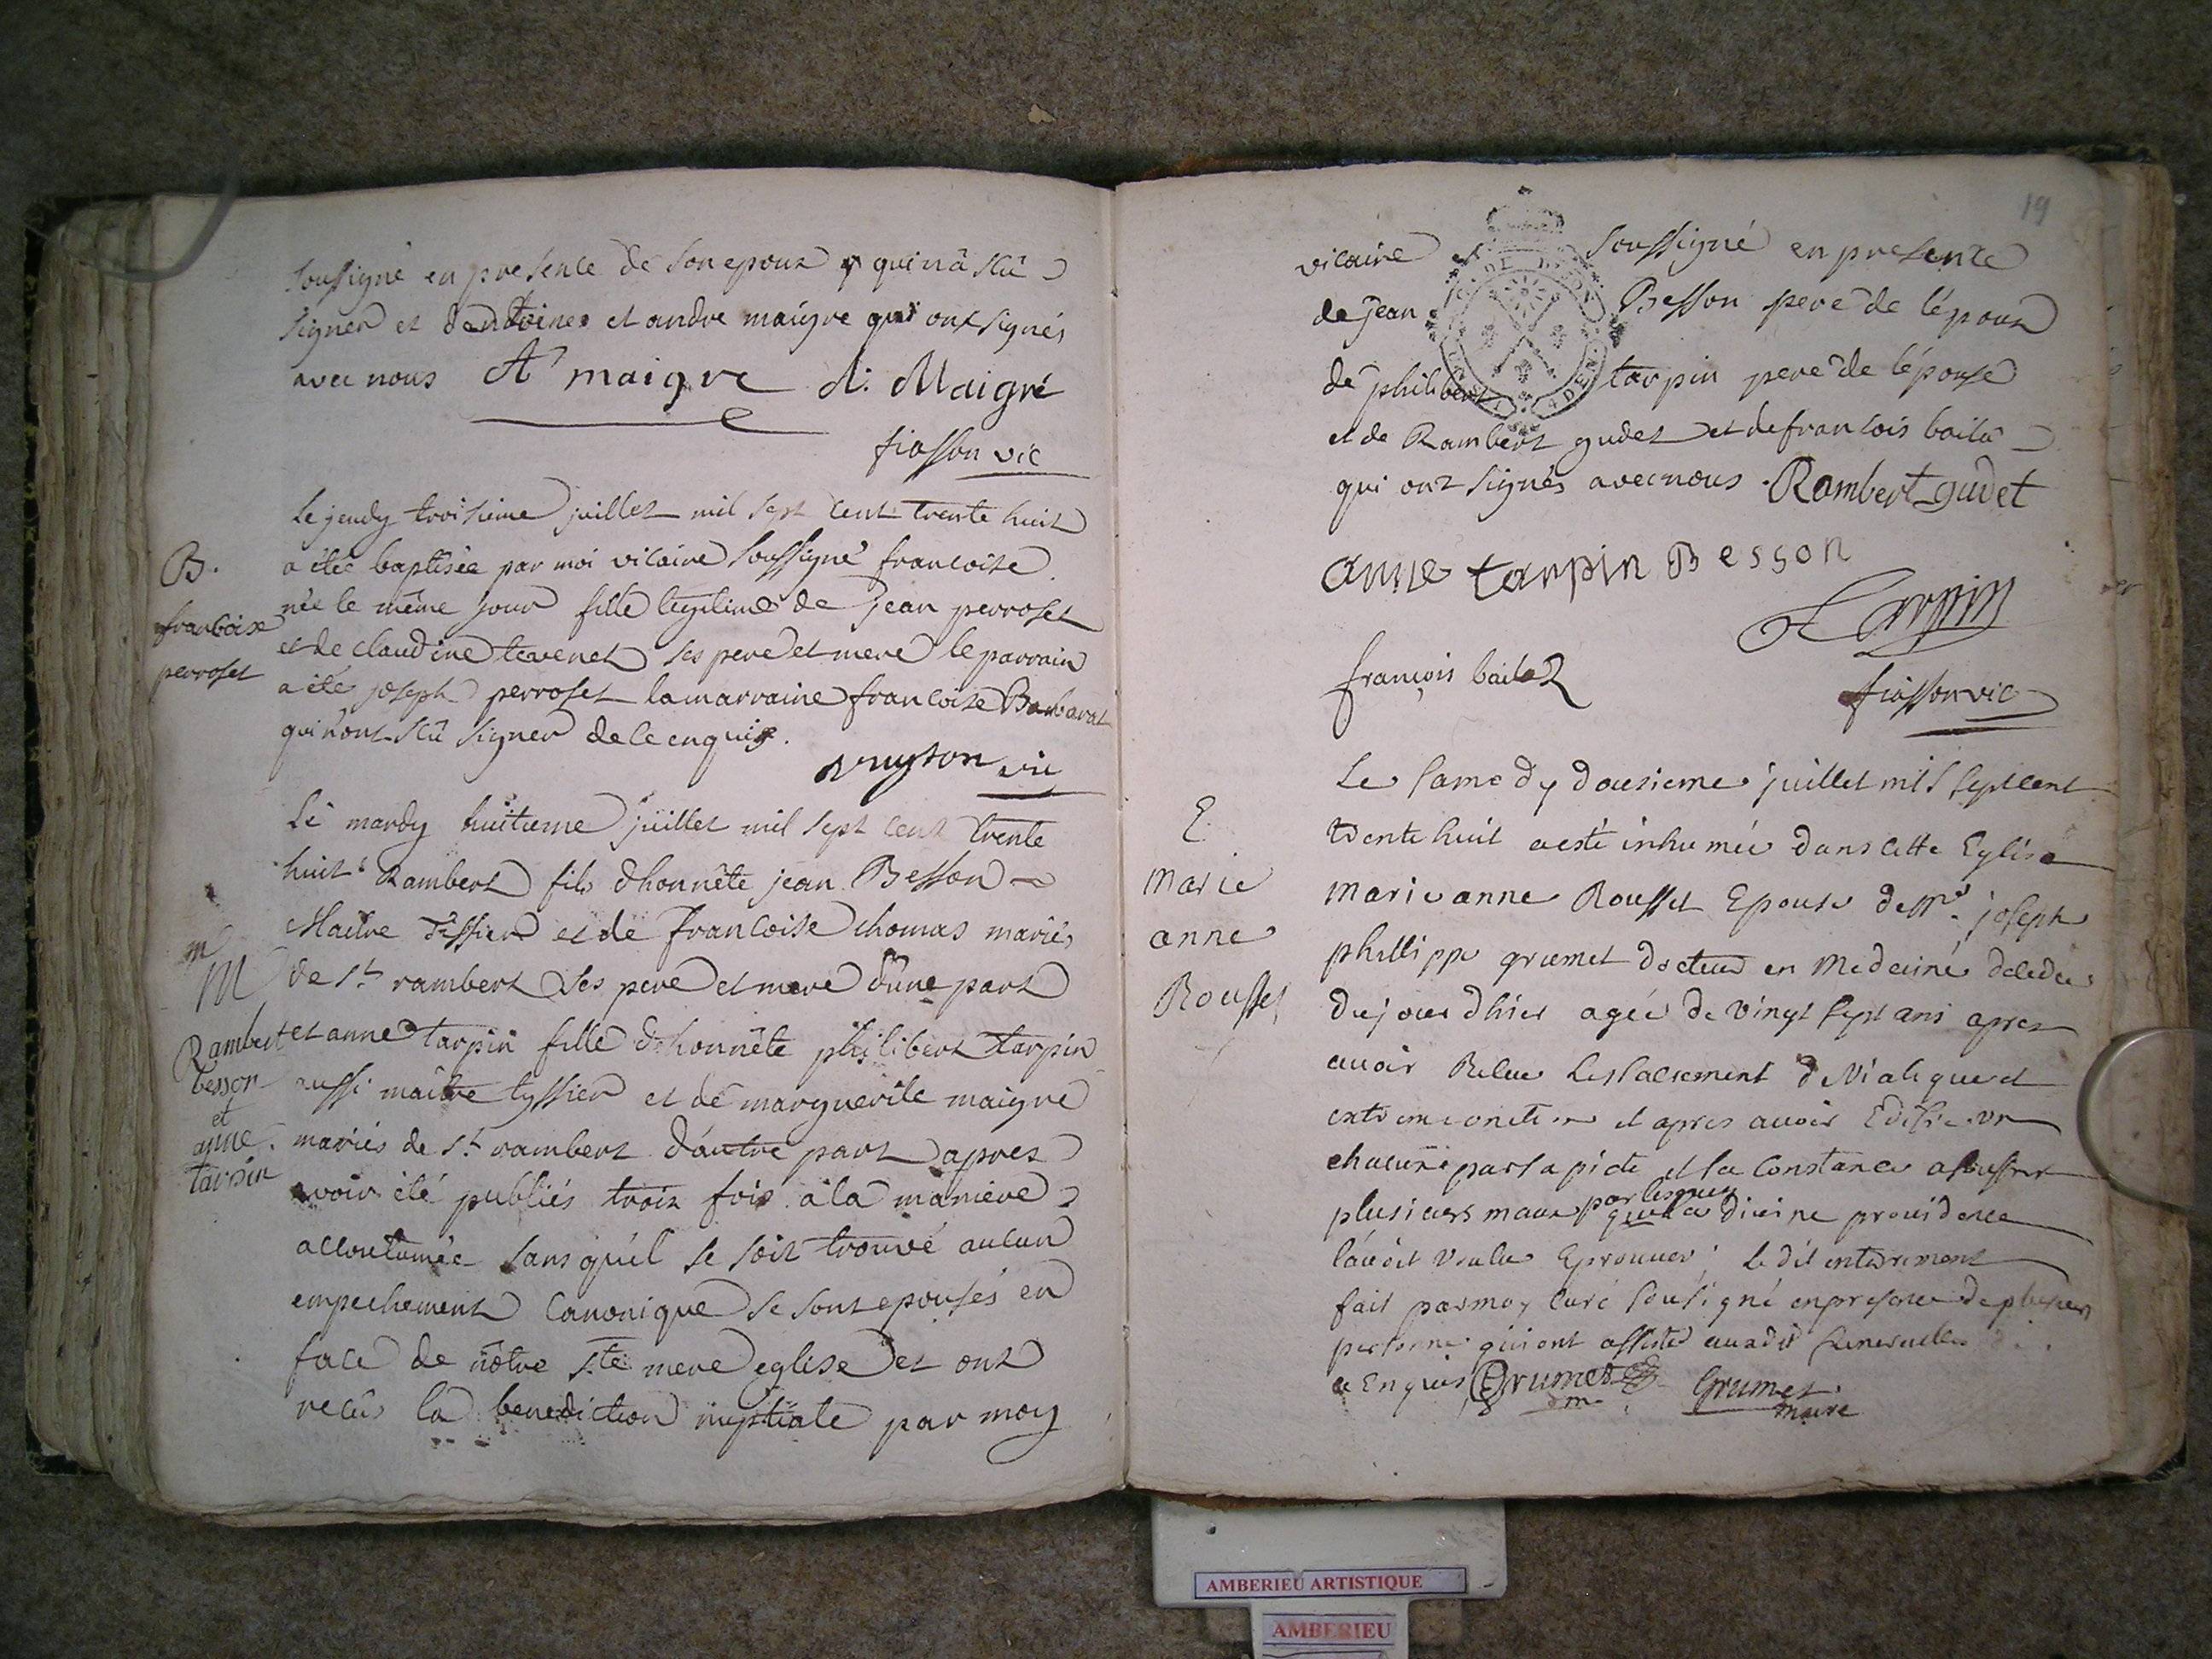 soussigné en presence de son epoux qui n'a scû
signer et d'antoine et andre maigre qui ont signés
avec nous At maigre A: Maigré
fiasson vic
Le jeudy troisieme juillet mil sept cent trente huit
B. a étée baptisée par moi vicaire soussigné francoise
francoise née le même jour fille legitime de jean perroset
perroset et de claudine tevenet ses pere et mere le parrain
a étés joseph perroset la marraine francoise Barbarat
qui n'ont scû signer de ce enquis.
vuyton vic
Le mardy huitieme juillet mil sept cent trente
huit Rambert fils d'honnête jean Besson
Maitre Tissier et de francoise thomas mariés
M de St rambert ses pere et mere d'une part
Rambert et anne tarpin fille d'honnête philibert tarpin
besson aussi maitre tyssier et de marguerite maigre
et
anne mariés de St rambert d'autre part apres
tarpin avoir été publiés trois fois a la maniere
accoutumée sans qu'il se soit trouvé aucun
empechement canonique se sont epousés en
face de nôtre Ste mere eglise et ont
recûs la benediction nuptiale par moy
19
vicaire soussigné en presence
de jean Besson pere de l'époux
de philibert tarpin pere de l'épouse
et de Rambert gudet et de francois bailа
qui ont signés avec nous Rambert gudet
anne tarpin Besson
Tarpin
françois baile
fiasson vic
Le samedy dousieme juillet mil sept cent
E. trente huit a esté inhumée dans cette Eglise
Marie marie anne Rousset Epouse de Mre joseph
anne phillippe grumet docteur en Medecine decedee
Rousset du jour d'hier agée de vingt sept ans apres
avoir Receu les sacrement de Viatique et
extremonction et apres avoir Edifié un
chacune par sa pieté et sa Constance a souffrir
plusieurs maux par lesquels que la divine providence
l'avoit voulu Eprouver; Le dit enterrement
fait par moy curé sousigné en presence de plusieurs
personne qui ont assisté audit funerailles
ce Enquis Grumet Grumet
dm maire
AMBERIEU ARTISTIQUE
AMBERIEU